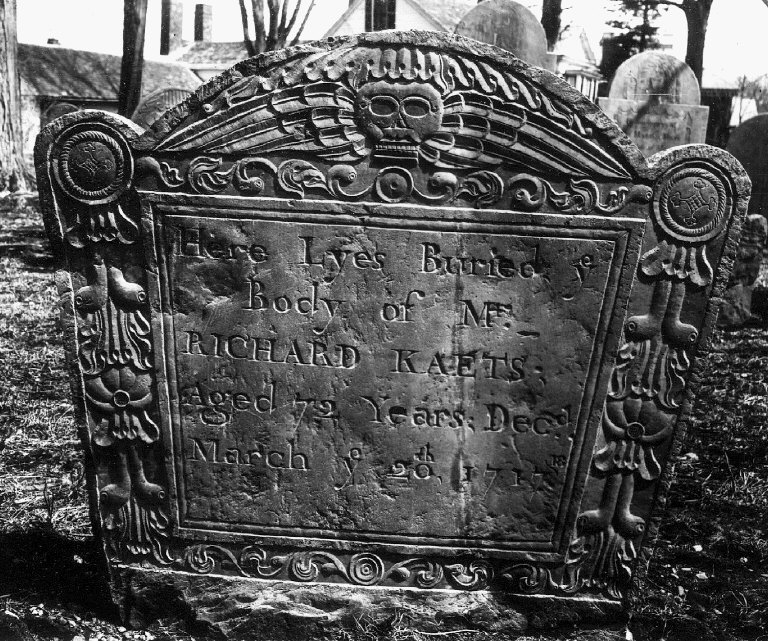 Here Lyes Buried yͤ
Body of Mr.
RICHARD KAETS
Aged 72 Years. Decd.
March yͤ 20th, 1717